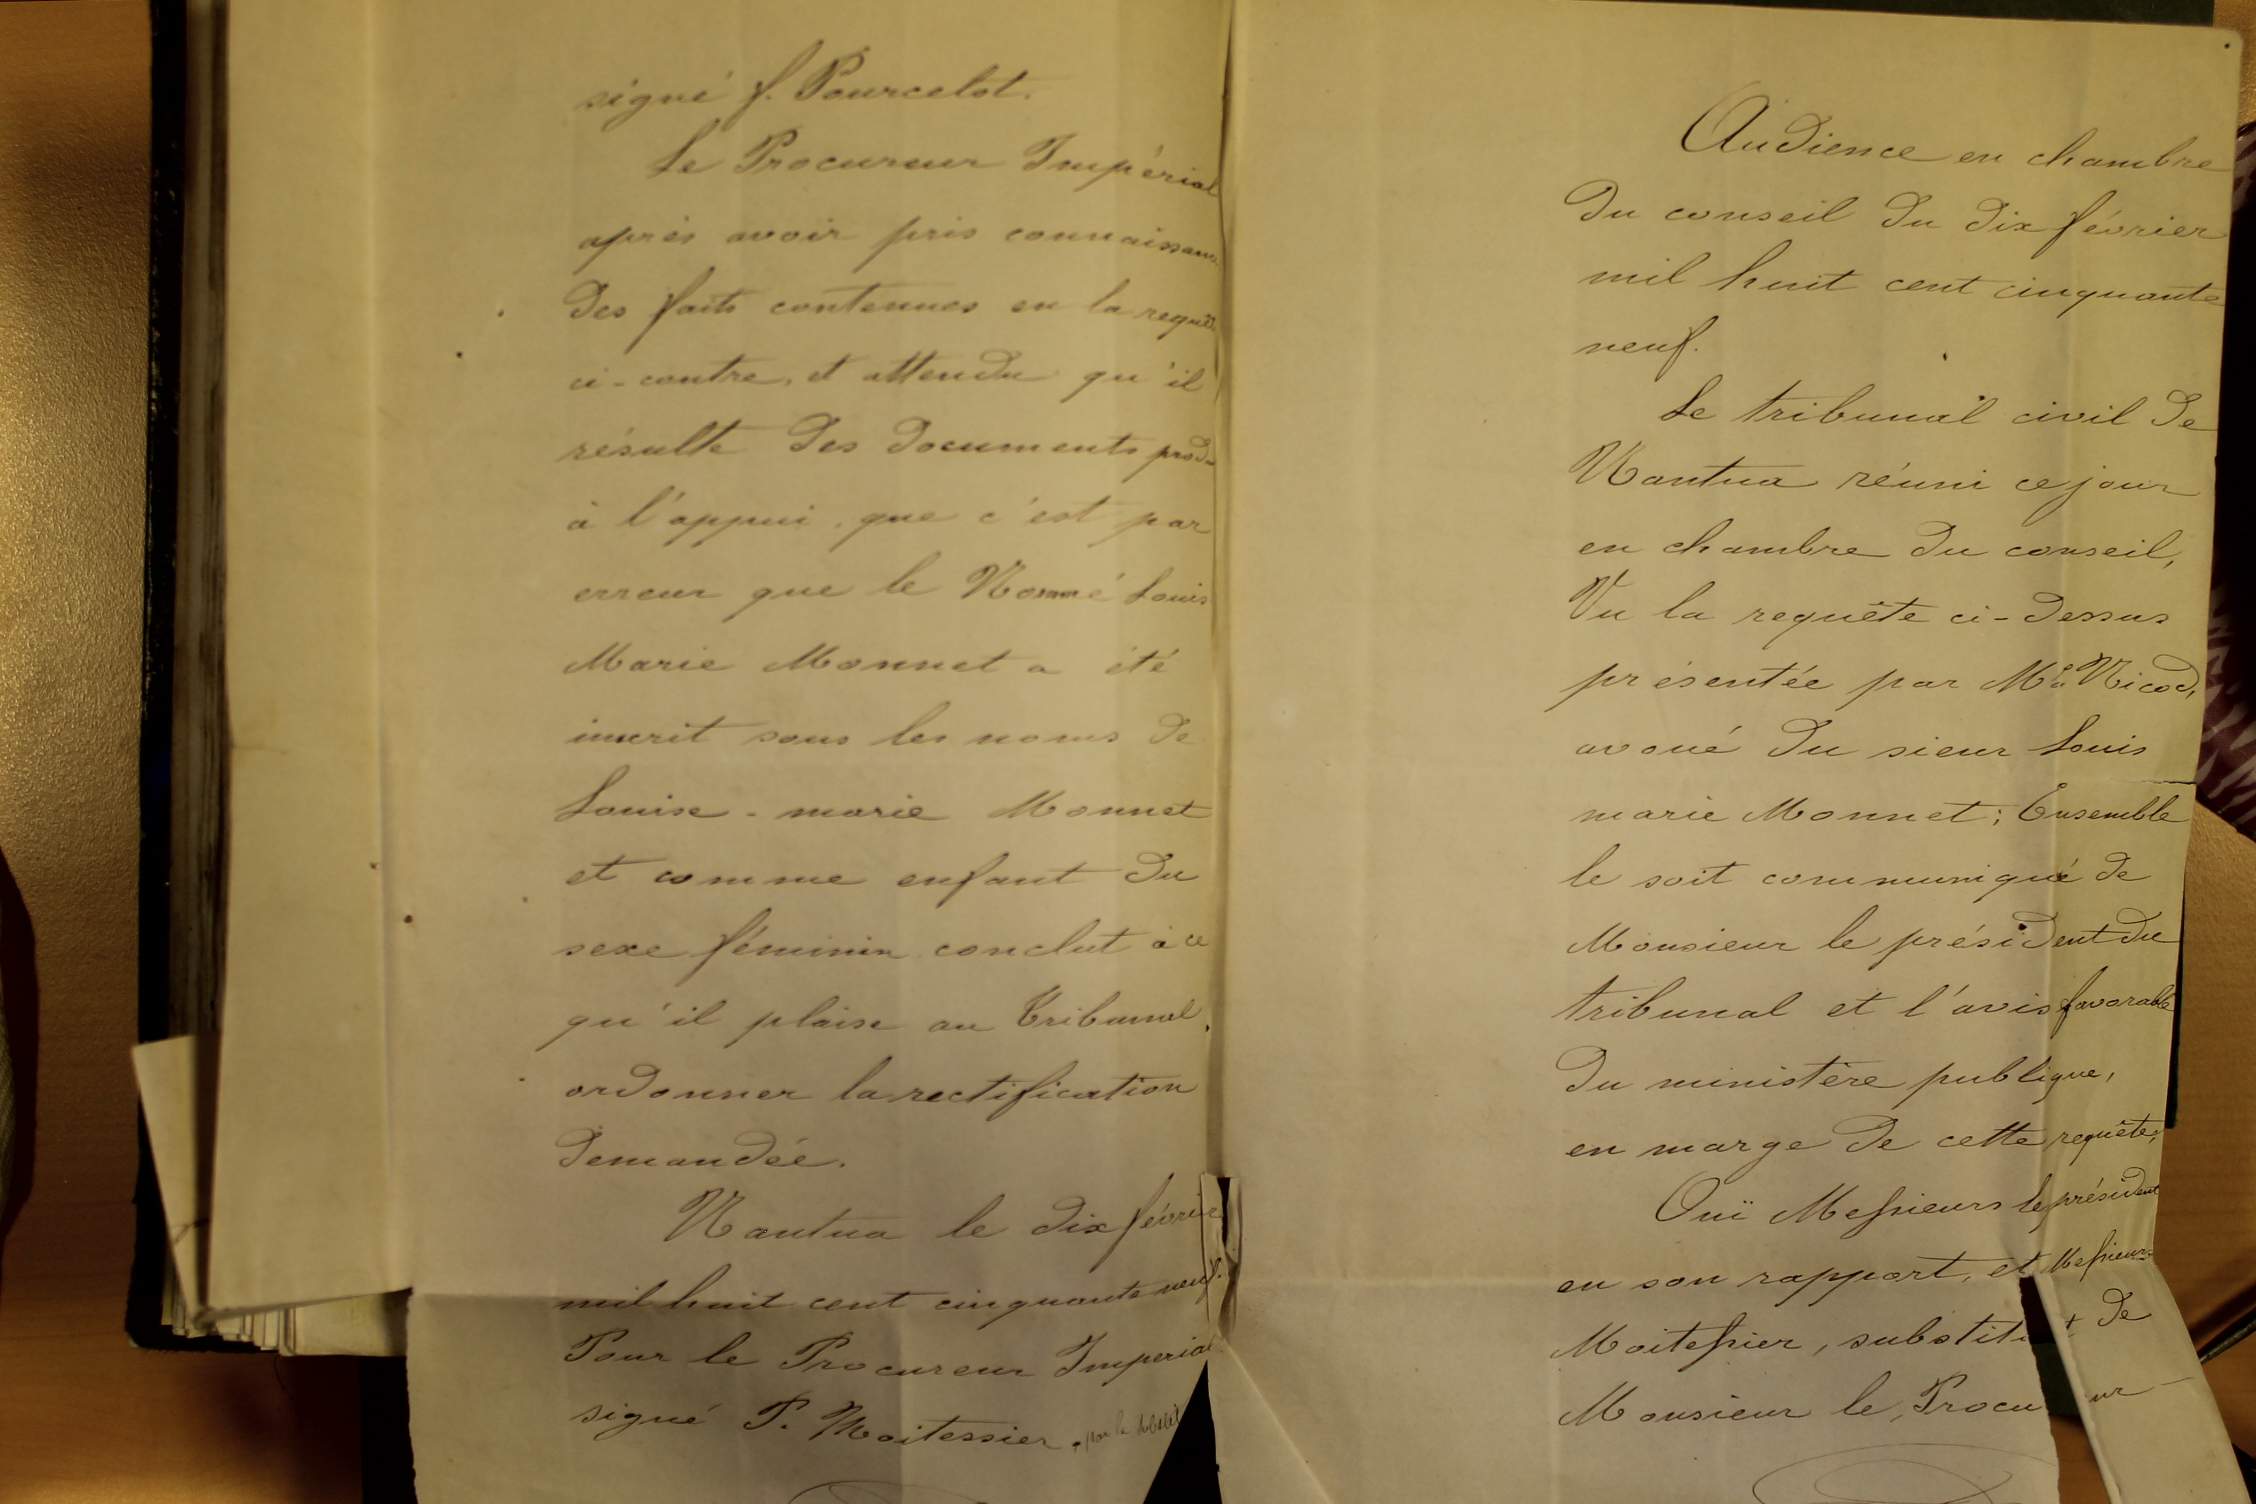 signé f. Pourcelot.
Le Procureur Impérial
après avoir pris connaissance
des faits contenues en la requête
ci-contre, et attendu qu'il
résulte des documents prod
à l'appui, que c'est par
erreur que le Nommé Louis
Marie Monnet a été
inscrit sous les noms de
Louise-marie Monnet
et comme enfant du
sexe féminin conclut à ce
qu'il plaise au Tribunal
ordonner la rectification
demandée.
Nantua le dix févrie
mil huit cent cinquante neuf.
Pour le Procureur Imperial
signé P. Moitessier, par le
Audience en chambre
du conseil du dix février
mil huit cent cinquante
neuf.
Le tribunal civil de
Nantua réuni ce jour
en chambre du conseil,
Vu la requête ci-dessus
présentée par Me Nicod,
avoué du sieur Louis
marie Monnet; Ensemble
le soit communiqué de
Monsieur le président du
tribunal et l'avis favorable
du ministère publique,
en marge de cette requête,
Ouï Messieurs le président
en son rapport, et Messieurs
Moitessier, substitut de
Monsieur le Procu ur